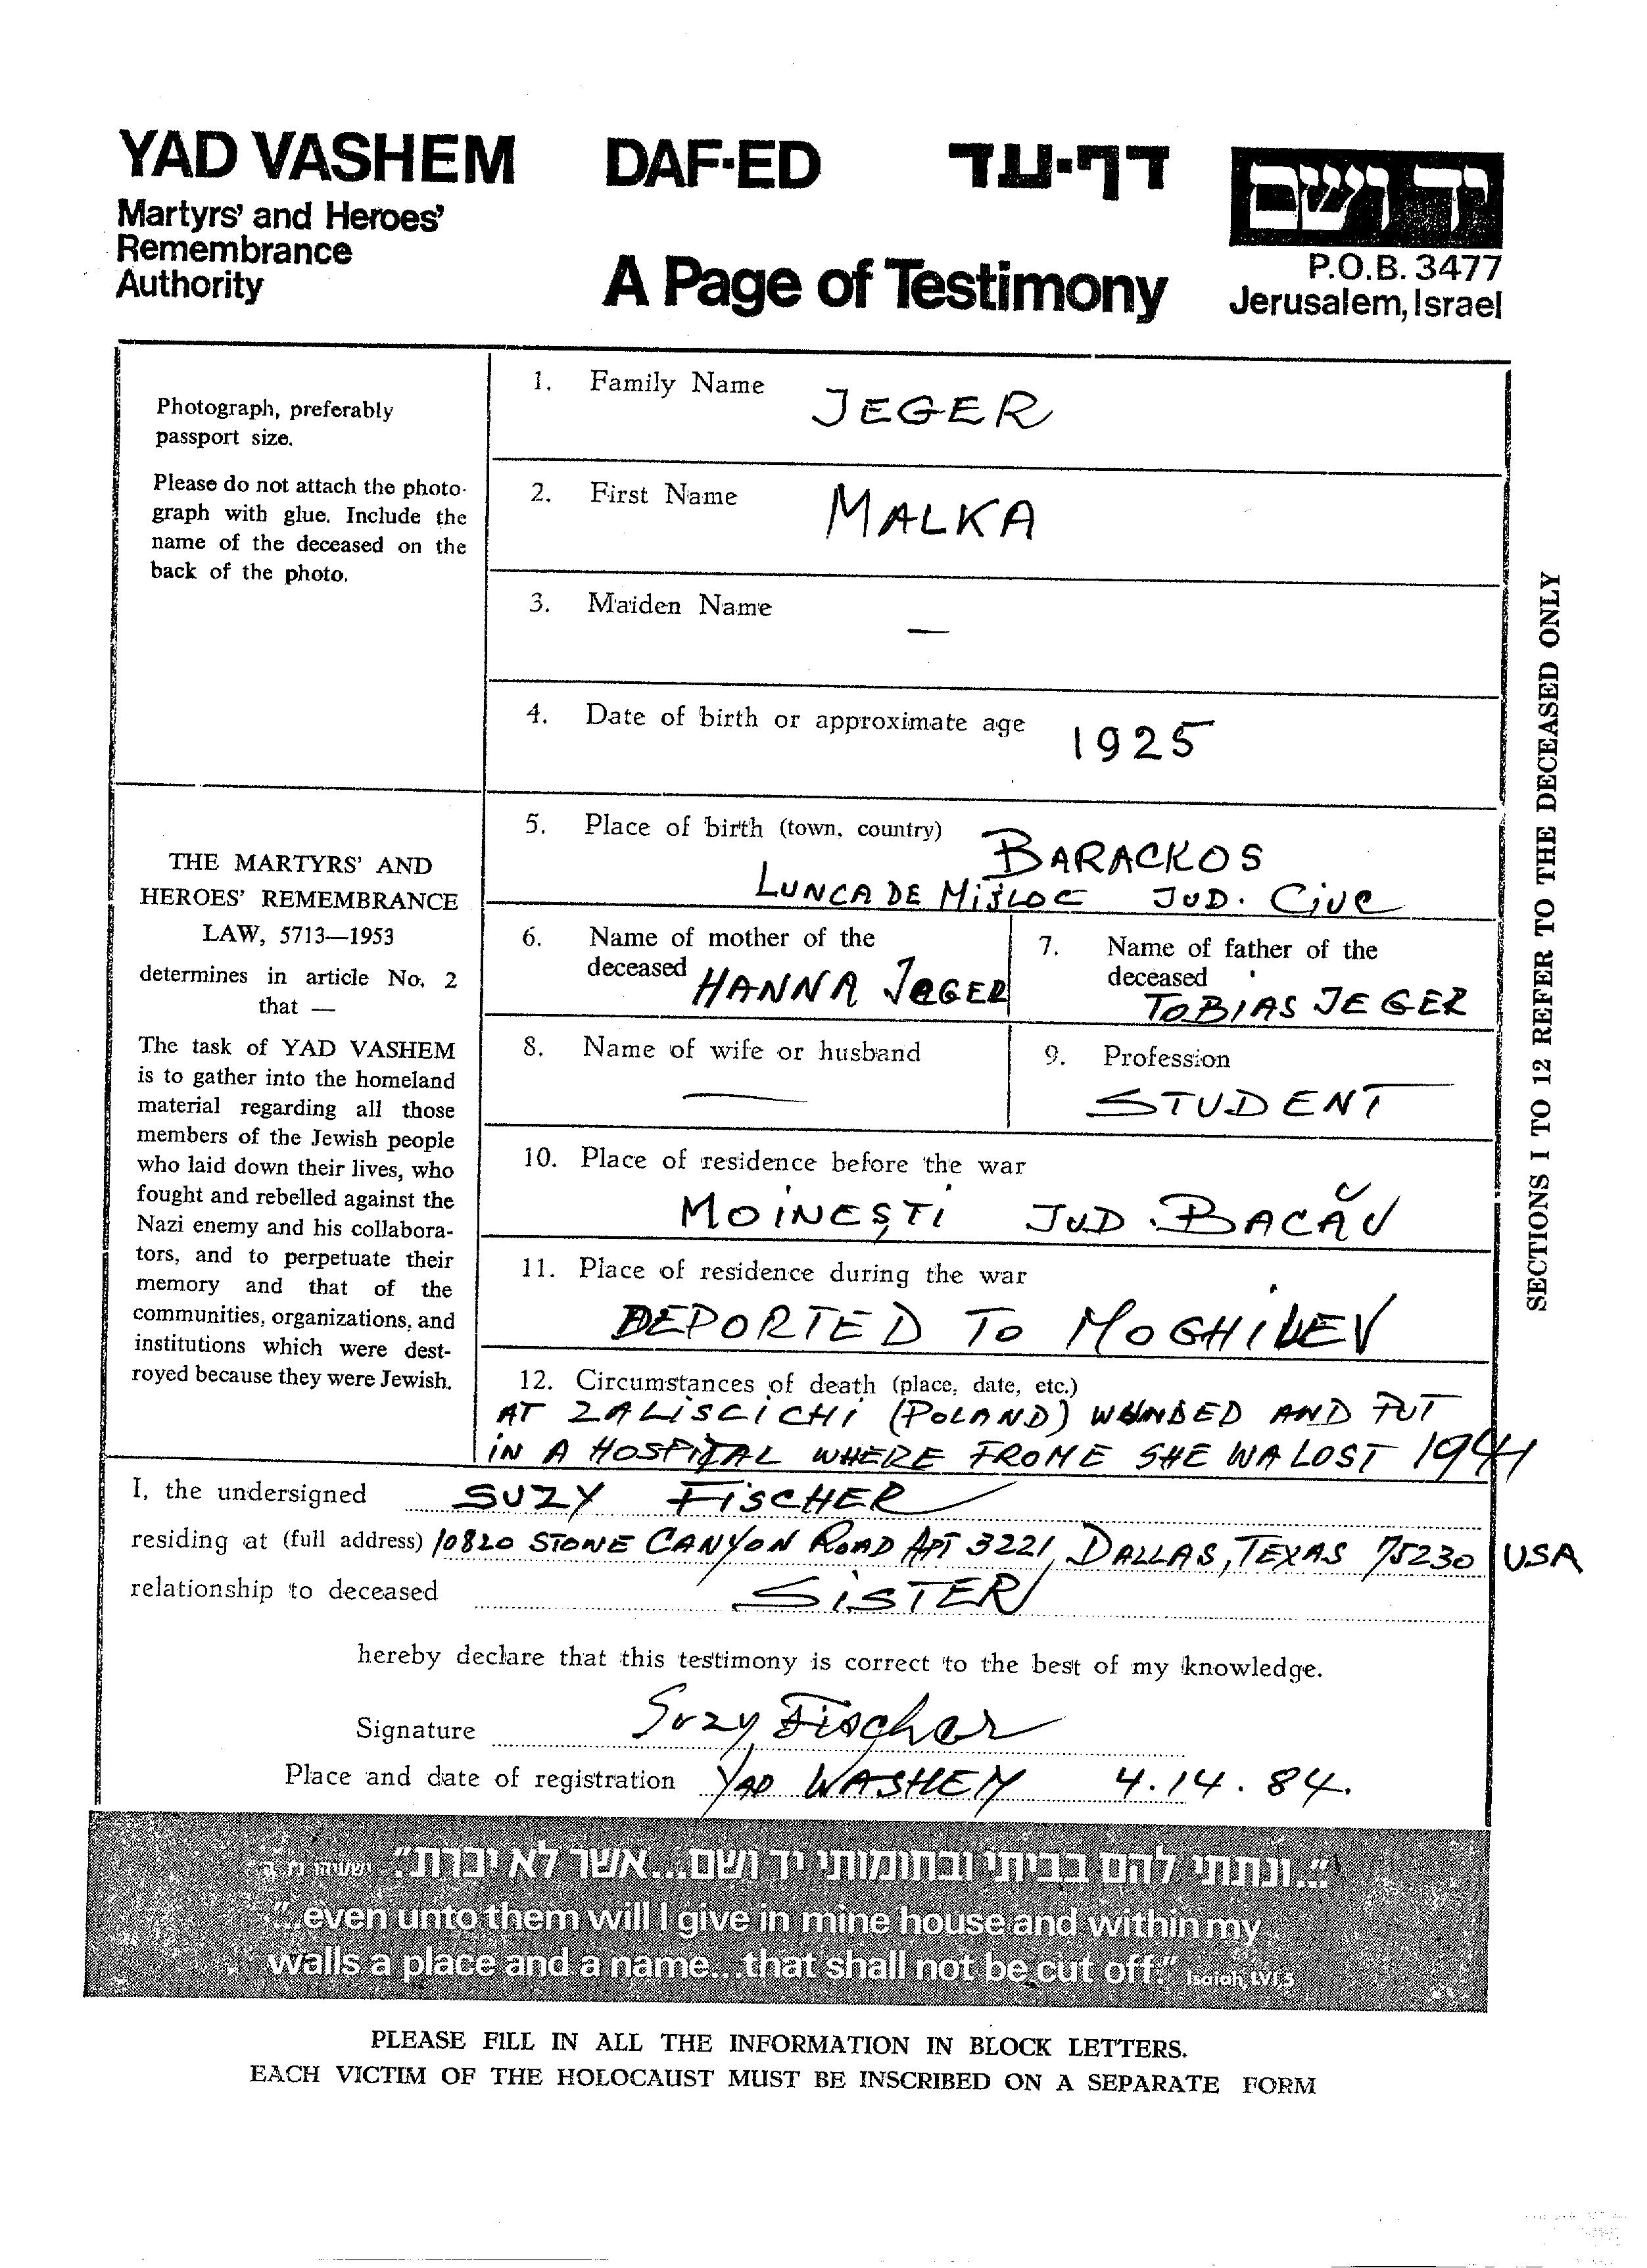 YAD VASHEM DAF-ED דף-עד ידושם
Martyrs' and Heroes'
Remembrance
Authority
A Page of Testimony
P.O.B. 3477
Jerusalem, Israel
Photograph, preferably
passport size.
Please do not attach the photo-
graph with glue. Include the
name of the deceased on the
back of the photo.
1. Family Name JEGER
2. First Name MALKA
3. Maiden Name —
4. Date of birth or approximate age 1925
THE MARTYRS' AND
HEROES' REMEMBRANCE
LAW, 5713—1953
determines in article No. 2
that —
The task of YAD VASHEM
is to gather into the homeland
material regarding all those
members of the Jewish people
who laid down their lives, who
fought and rebelled against the
Nazi enemy and his collabora-
tors, and to perpetuate their
memory and that of the
communities, organizations, and
institutions which were dest-
royed because they were Jewish.
5. Place of birth (town, country) BARACKOS
LUNCA DE MIJLOC JUD. CIUC
6. Name of mother of the
deceased HANNA JEGER
7. Name of father of the
deceased TOBIAS JEGER
8. Name of wife or husband —
9. Profession
STUDENT
10. Place of residence before the war
MOINEȘTI JUD. BACĂU
11. Place of residence during the war
DEPORTED TO MOGHILEV
12. Circumstances of death (place, date, etc.)
AT ZALISCICHI (POLAND) WOUNDED AND PUT
IN A HOSPITAL WHERE FROME SHE WA LOST 1941
SECTIONS 1 TO 12 REFER TO THE DECEASED ONLY
I, the undersigned SUZY FISCHER
residing at (full address) 10820 STONE CANYON ROAD APT 3221, DALLAS, TEXAS 75230 USA
relationship to deceased SISTER
hereby declare that this testimony is correct to the best of my knowledge.
Signature Suzy Fischer
Place and date of registration YAD WASHEM 4.14.84.
"...ונתתי להם בביתי ובחומותי יד ושם...אשר לא יכרת." ישעיהו נו, ה
"...even unto them will I give in mine house and within my
walls a place and a name...that shall not be cut off." Isaiah, LVI,5
PLEASE FILL IN ALL THE INFORMATION IN BLOCK LETTERS.
EACH VICTIM OF THE HOLOCAUST MUST BE INSCRIBED ON A SEPARATE FORM